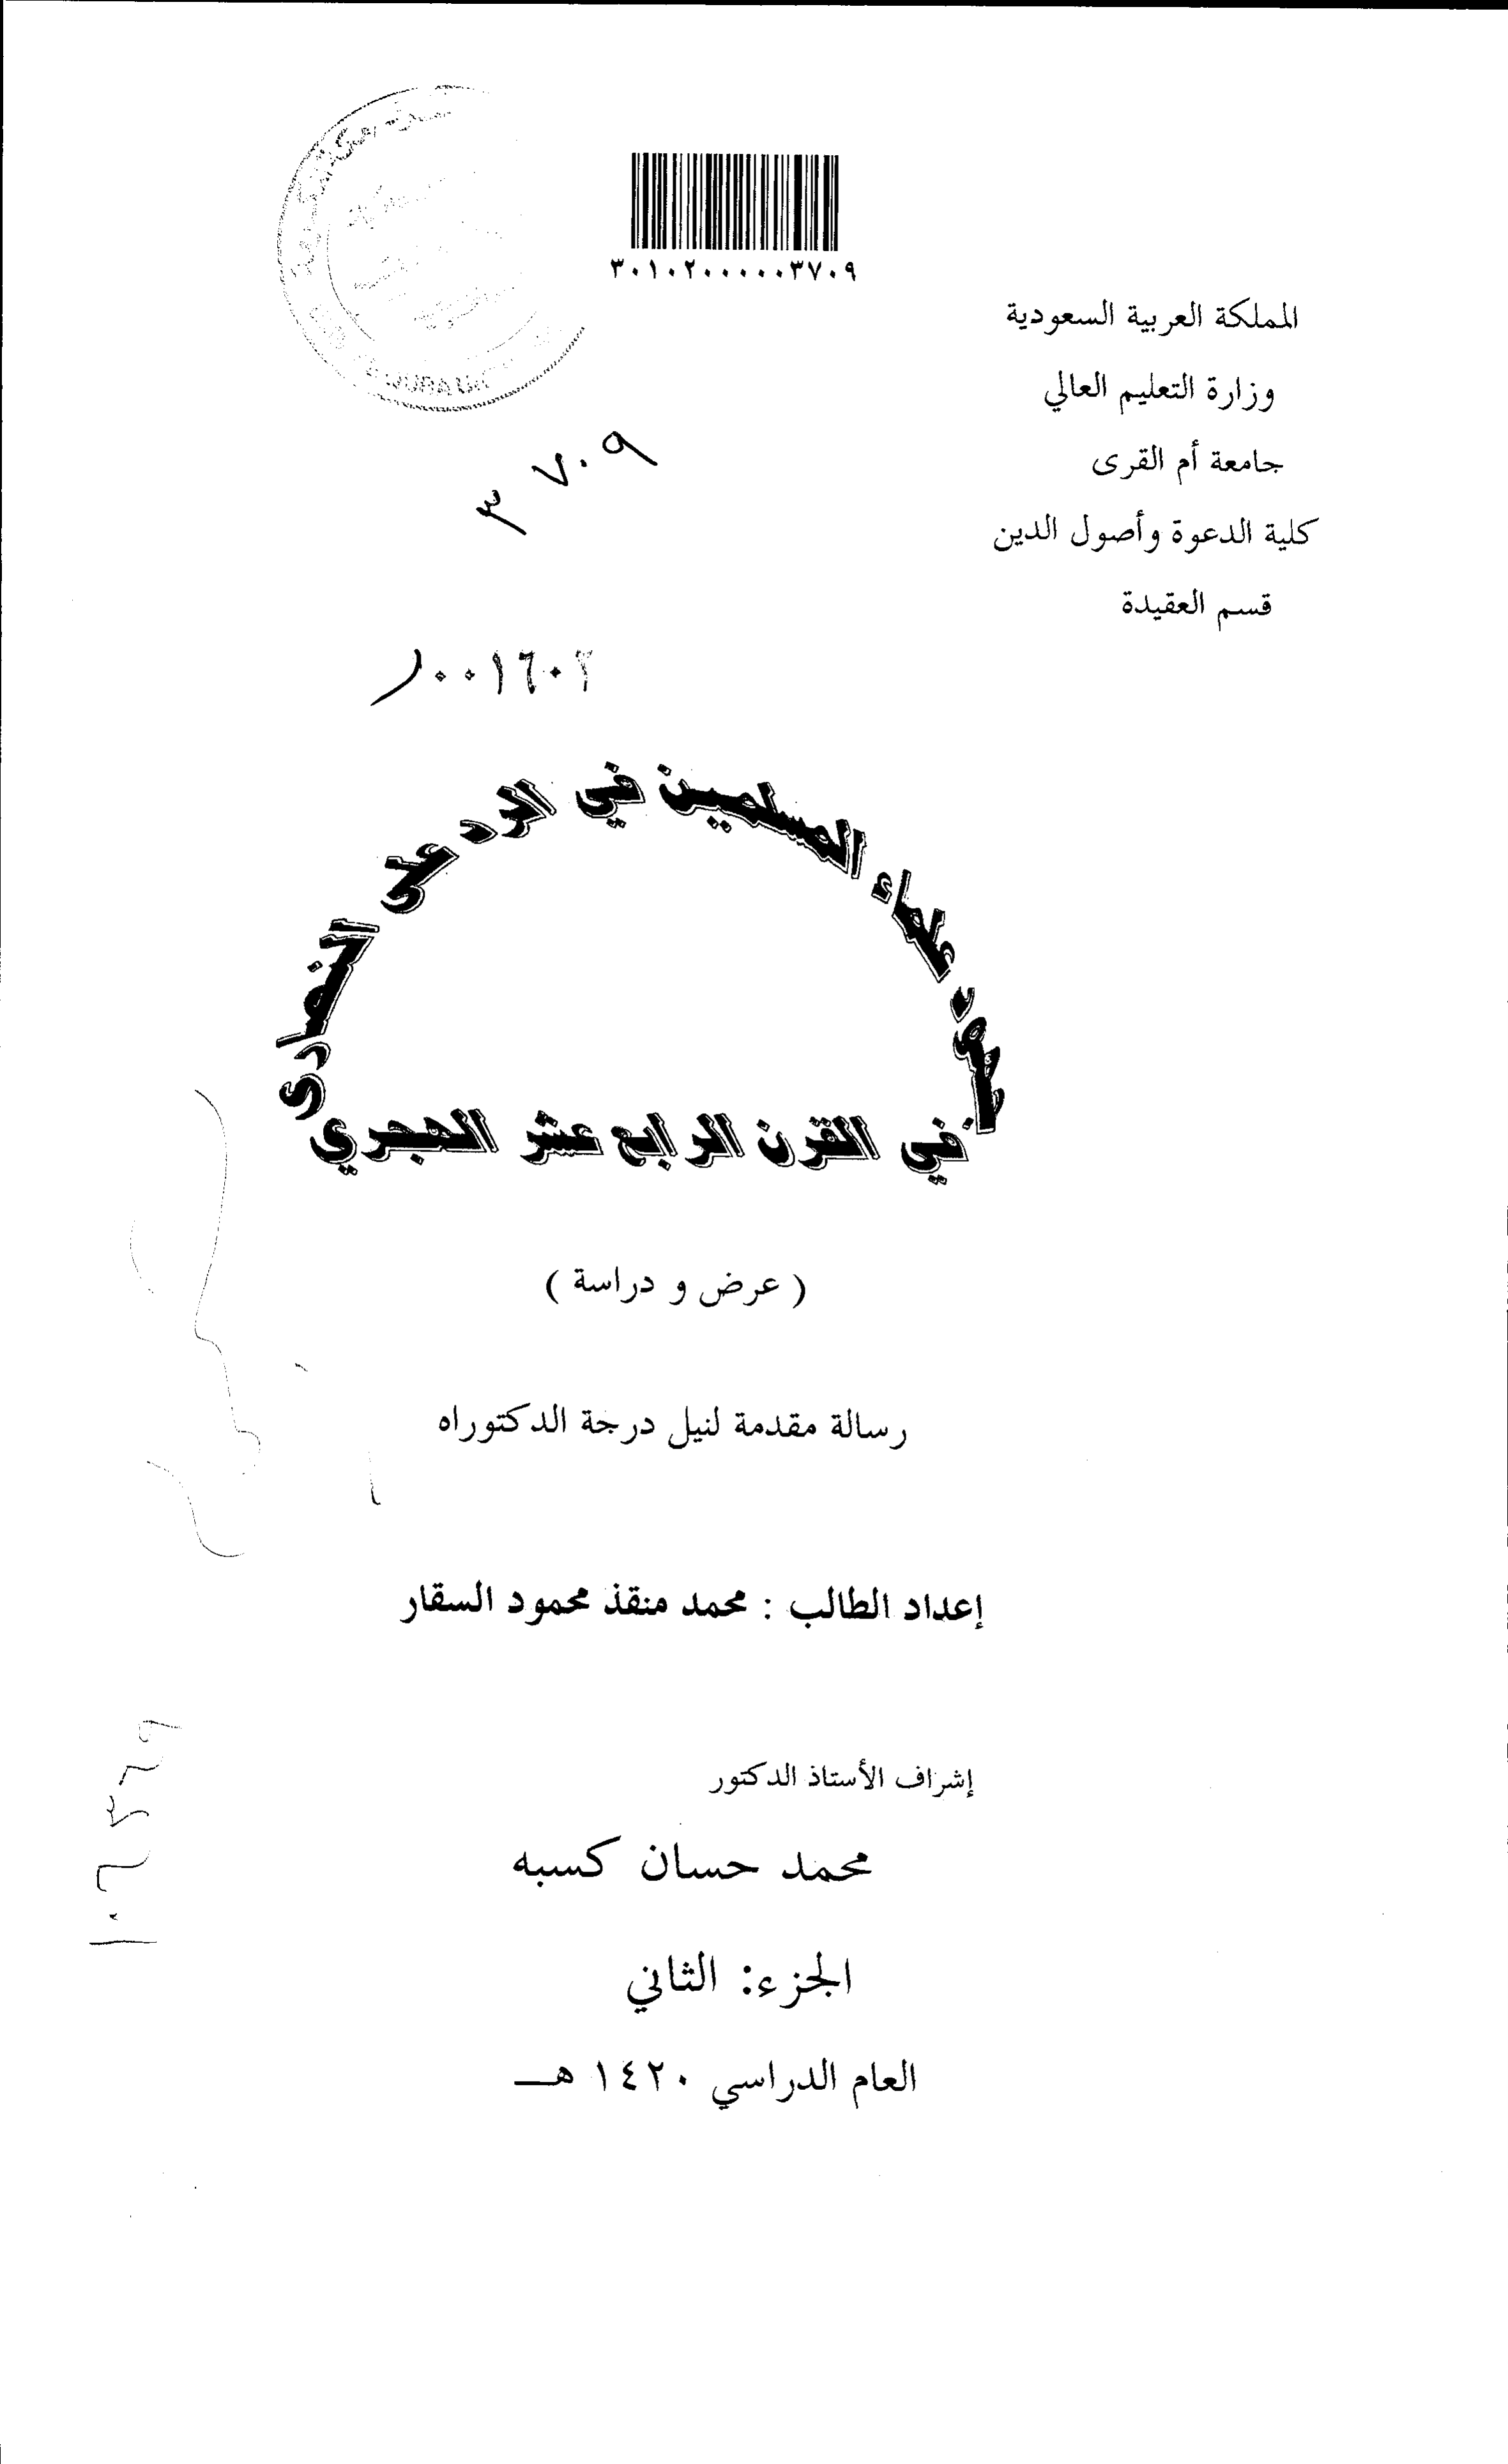 ٣٠١٠٢٠٠٠٠٠٣٧٠٩
المملكة العربية السعودية
وزارة التعليم العالي
جامعة أم القرى
كلية الدعوة وأصول الدين
قسم العقيدة
٣٧٠٩
٠٠١٦٠٢
علماء المسلمين في الرد على النصارى
في القرن الرابع عشر الهجري
( عرض و دراسة )
رسالة مقدمة لنيل درجة الدكتوراه
إعداد الطالب : محمد منقذ محمود السقار
إشراف الأستاذ الدكتور
محمد حسان كسبه
الجزء: الثاني
العام الدراسي ١٤٢٠ هـــ